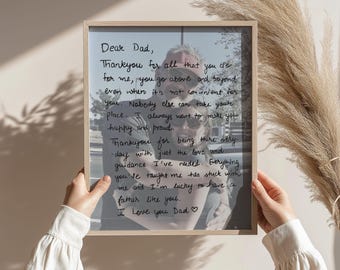 Dear Dad,
Thankyou for all that you do
for me, you go above and beyond
even when it's not convenient for
you. Nobody else can take your
place always want to make you
happy and proud.
Thankyou for being there every
day with just the love and
guidance I've needed. Everything
you've taught me has stuck with
me and I'm lucky to have a
father like you.
I Love you Dad ♡